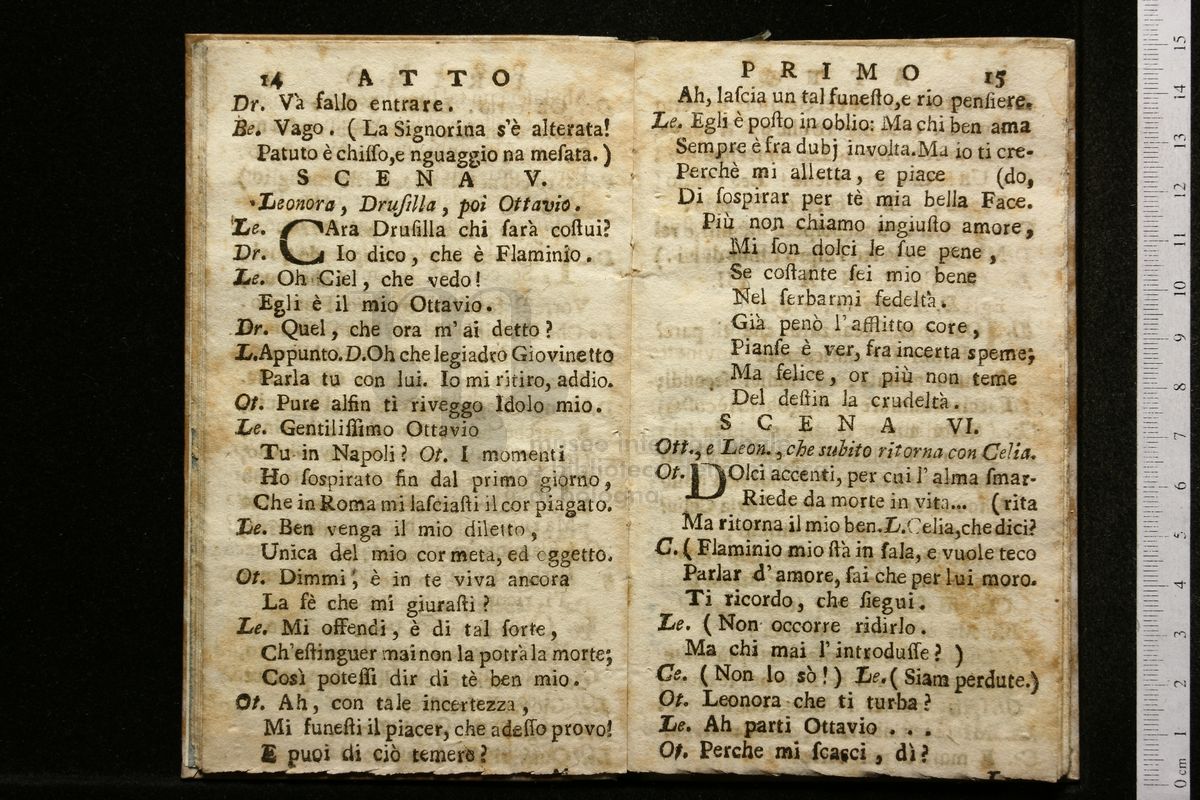 14 ATTO
Dr. Và fallo entrare.
Be. Vago. (La Signorina s'è alterata!
Patuto è chiſſo,e nguaggio na meſata.)
SCENA V.
Leonora, Druſilla, poi Ottavio.
Le. CAra Druſilla chi ſarà coſtui?
Dr. Io dico, che è Flaminio.
Le. Oh Ciel, che vedo!
Egli è il mio Ottavio.
Dr. Quel, che ora m'ai detto?
L.Appunto.D.Oh che legiadro Giovinetto
Parla tu con lui. Io mi ritiro, addio.
Ot. Pure alfin ti riveggo Idolo mio.
Le. Gentiliſſimo Ottavio
Tu in Napoli? Ot. I momenti
Ho ſoſpirato fin dal primo giorno,
Che in Roma mi laſciaſti il cor piagato.
Le. Ben venga il mio diletto,
Unica del mio cor meta, ed oggetto.
Ot. Dimmi, è in te viva ancora
La fè che mi giuraſti?
Le. Mi offendi, è di tal ſorte,
Ch'eſtinguer mai non la potrà la morte;
Così poteſſi dir di tè ben mio.
Ot. Ah, con tale incertezza,
Mi funeſti il piacer, che adeſſo provo!
E puoi di ciò temere?
PRIMO 15
Ah, laſcia un tal funeſto,e rio penſiere.
Le. Egli è poſto in oblio: Ma chi ben ama
Sempre è fra dubj involta.Ma io ti cre-
Perchè mi alletta, e piace (do,
Di ſoſpirar per tè mia bella Face.
Più non chiamo ingiuſto amore,
Mi ſon dolci le ſue pene,
Se coſtante ſei mio bene
Nel ſerbarmi fedeltà.
Già penò l'afflitto core,
Pianſe è ver, fra incerta speme;
Ma felice, or più non teme
Del deſtin la crudeltà.
SCENA VI.
Ott., e Leon., che subito ritorna con Celia.
Ot. DOlci accenti, per cui l'alma ſmar-
Riede da morte in vita... (rita
Ma ritorna il mio ben.L.Celia,che dici?
C. (Flaminio mio ſtà in ſala, e vuole teco
Parlar d'amore, ſai che per lui moro.
Ti ricordo, che ſiegui.
Le. (Non occorre ridirlo.
Ma chi mai l'introduſſe?)
Ce. (Non lo sò!) Le.(Siam perdute.)
Ot. Leonora che ti turba?
Le. Ah parti Ottavio...
Ot. Perche mi ſcacci, dì?